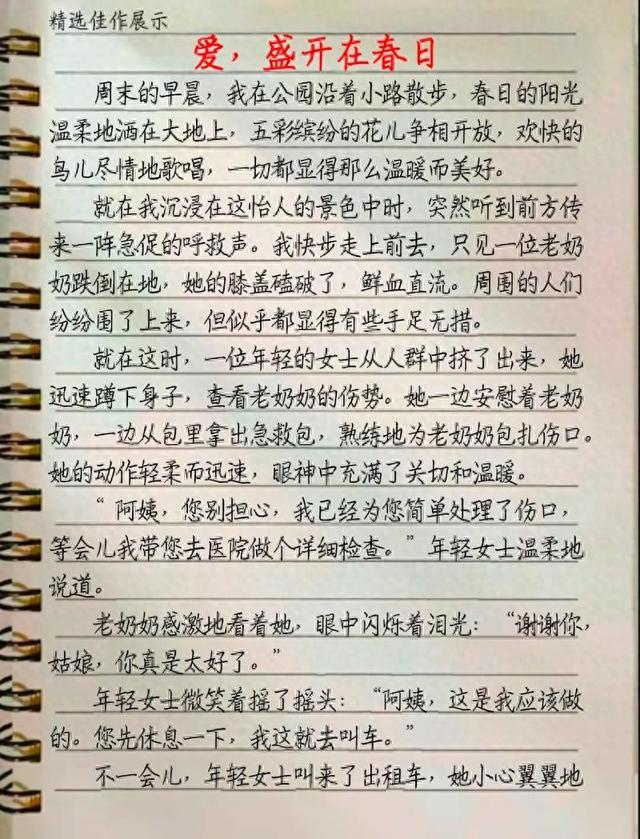 精选佳作展示
爱，盛开在春日
周末的早晨，我在公园沿着小路散步，春日的阳光
温柔地洒在大地上，五彩缤纷的花儿争相开放，欢快的
鸟儿尽情地歌唱，一切都显得那么温暖而美好。
就在我沉浸在这怡人的景色中时，突然听到前方传
来一阵急促的呼救声。我快步走上前去，只见一位老奶
奶跌倒在地，她的膝盖磕破了，鲜血直流。周围的人们
纷纷围了上来，但似乎都显得有些手足无措。
就在这时，一位年轻的女士从人群中挤了出来，她
迅速蹲下身子，查看老奶奶的伤势。她一边安慰着老奶
奶，一边从包里拿出急救包，熟练地为老奶奶包扎伤口。
她的动作轻柔而迅速，眼神中充满了关切和温暖。
“阿姨，您别担心，我已经为您简单处理了伤口，
等会儿我带您去医院做个详细检查。”年轻女士温柔地
说道。
老奶奶感激地看着她，眼中闪烁着泪光：“谢谢你，
姑娘，你真是太好了。”
年轻女士微笑着摇了摇头：“阿姨，这是我应该做
的。您先休息一下，我这就去叫车。”
不一会儿，年轻女士叫来了出租车，她小心翼翼地